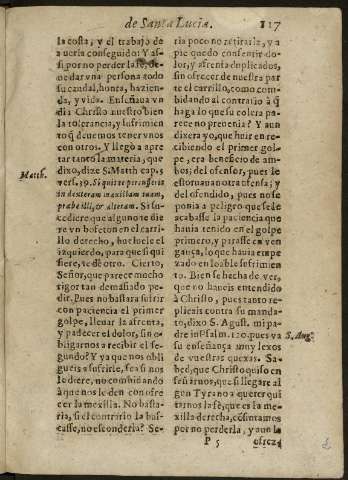 de Santa Lucia. 117
la costa, y el trabajo de
averla conseguido: Y as-
si, por no perder la fè, de-
ve dar vna persona todo
su caudal, honra, hazien-
da, y vida. Enseñaua vn
dia Christo nuestro bien
la tolerancia, y sufrimien
to q̃ deuemos tener vnos
con otros. Y llegò a apre
tar tanto la materia, que
dixo, dize S. Matth cap. 5
vers. 39. Si quis te percusserit
in dexteram maxillam tuam,
præbe illi, & alteram. Si su-
cediere que alguno te die
re vn bofeton en el carri
llo derecho, buelvele el
izquierdo, para que si qui
siere, te dè otro. Cierto,
Señor, que parece mucho
rigor tan demasiado pe-
dir. Pues no bastara sufrir
con paciencia el primer
golpe, lleuar la afrenta,
y padecer el dolor, sin o-
bligarnos a recibir el se-
gundo? Y ya que nos obli
gueis a sufrirle, sea si nos
le diere, no combidando
à que nos le den con ofre
cer la mexilla. No basta-
ria, si el contrario la bus-
casse, no esconderla? Se-
Matth.
ria poco no retirarle, y a
pie quedo consentir do-
lor, y afrenta duplicados,
sin ofrecer de nuestra par
te el carrillo, como com-
bidando al contrario à q̃
haga lo que su colera pa-
rece no preuenia? Y aun
dixera yo, que huir en re-
cibiendo el primer gol-
pe, era beneficio de am-
bos; del ofensor, pues le
estoruauan otra ofensa; y
del ofendido, pues no se
ponia a peligro que se le
acabasse la paciencia que
hauia tenido en el golpe
primero, y parasse en ven
gança, lo que hauia empe
zado en loable sufrimien
to. Bien se hecha de ver,
que no haueis entendido
à Christo, pues tanto re-
plicais contra su manda-
to, dixo S. Agust. mi pa-
dre in Psalm. 120. pues va
su enseñança muy lexos
de vuestras quexas. Sa-
bed, que Christo quiso en
señarnos, que si llegare al
gen Tyrano a querer qui
tarnos la fè, que es la me-
xilla derecha, cõsintamos
por no perderla, y aun la
S. Aug.
P 5 ofrez-